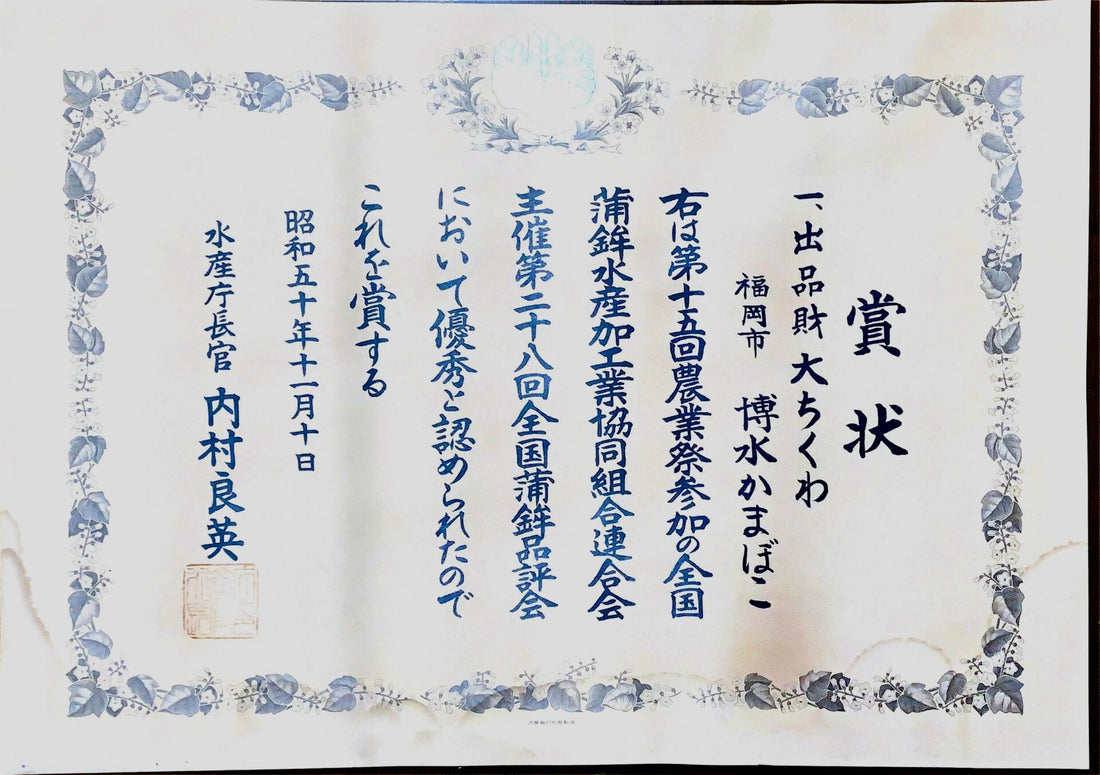 賞状
一、出品財 大ちくわ
福岡市 博水かまぼこ
右は第十五回農業祭参加の全国
蒲鉾水産加工業協同組合連合会
主催第二十八回全国蒲鉾品評会
において優秀と認められたので
これを賞する
昭和五十年十一月十日
水産庁長官 内村良英